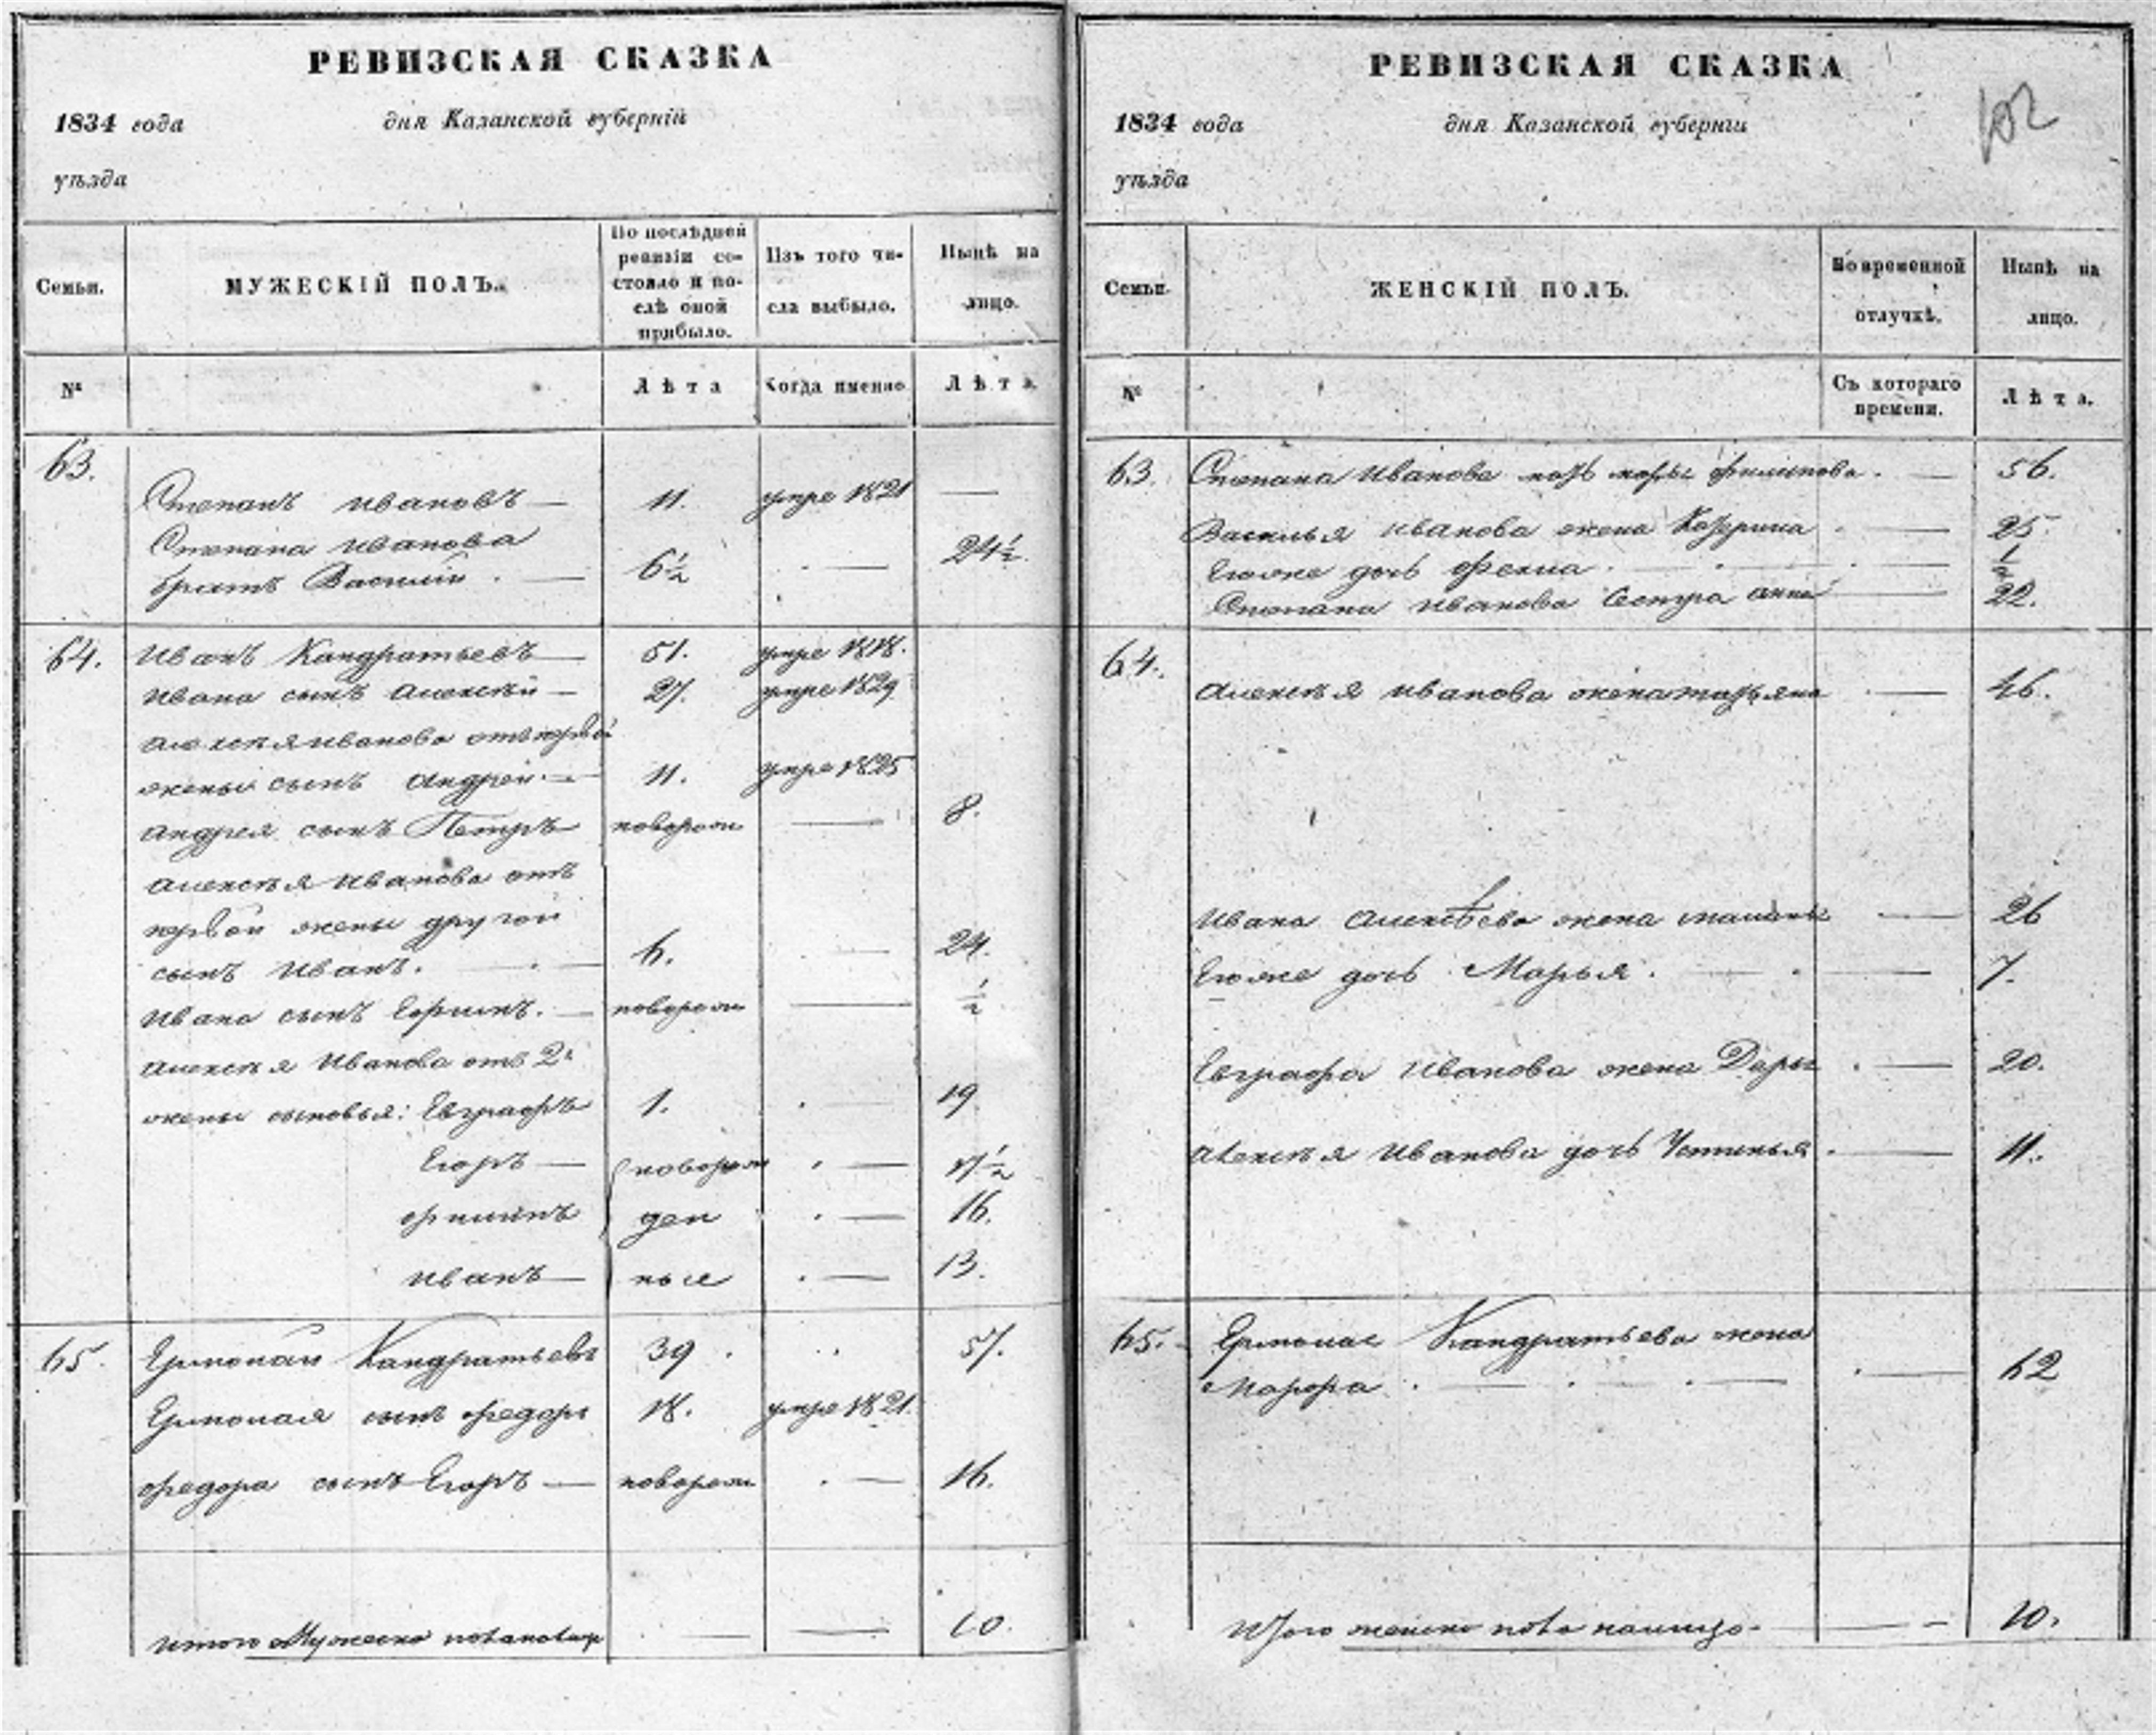 РЕВИЗСКАЯ СКАЗКА
1834 года дня Казанской губерніи
уѣзда
Семьи.
МУЖЕСКІЙ ПОЛЪ.
По послѣдней
ревизіи со-
стояло и по-
слѣ оной
прибыло.
Изъ того чи-
сла выбыло.
Нынѣ на
лицо.
№
Лѣта
Когда именно
Лѣта.
63.
Степанъ Ивановъ — 11. умре 1821 —
Степана Иванова
братъ Василій. — 6½ . — 24½
64. Иванъ Кандратьевъ — 51. умре 1818.
Ивана сынъ Алексѣй — 27. умре 1829
Алексѣя Иванова отъ первой
жены сынъ Андрей. — 11. умре 1825
Андрея сынъ Петръ новорож — 8.
Алексѣя Иванова отъ
первой жены другой
сынъ Иванъ. — 6. . — 24.
Ивана сынъ Ефимъ. — новорож — ½
Алексѣя Иванова отъ 2й
жены сыновья: Евграфъ 1. . — 19
Егоръ — новорож . — 17½
Филипъ ден . — 16.
Иванъ — ные . — 13.
65. Ермолай Кандратьевъ 39 . . . 57.
Ермолая сынъ Федоръ 18. умре 1821.
Федора сынъ Егоръ — новорож . — 16.
Итого Мужеска пола — — 10.
РЕВИЗСКАЯ СКАЗКА
102
1834 года дня Казанской губерніи
уѣзда
Семьи.
ЖЕНСКІЙ ПОЛЪ.
Во временной
отлучкѣ.
Нынѣ на
лицо.
№
Съ котораго
времени.
Лѣта.
63. Степана Иванова мать Филипова. — 56.
Василья Иванова жена Катерина . — 25.
Егоже дочь Фекла . — ½
Степана Иванова сестра Анна — 22.
64.
Алексѣя Иванова жена Татьяна . — 46.
Ивана Алексѣева жена — 26
Егоже дочь Марья . — . — 7.
Евграфа Иванова жена Дарья . — 20.
Алексѣя Иванова дочь Устинья . — 11.
65. Ермолая Кандратьева жена
Марфа . — . — . — 62
Итого женска пола налицо — — 10.